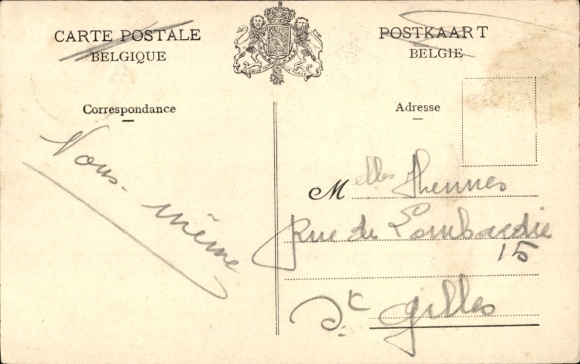 CARTE POSTALE
BELGIQUE
POSTKAART
BELGIE
Correspondance
Adresse
Nous-même
Melles Thennes
Rue de Lombardie
15
St Gilles